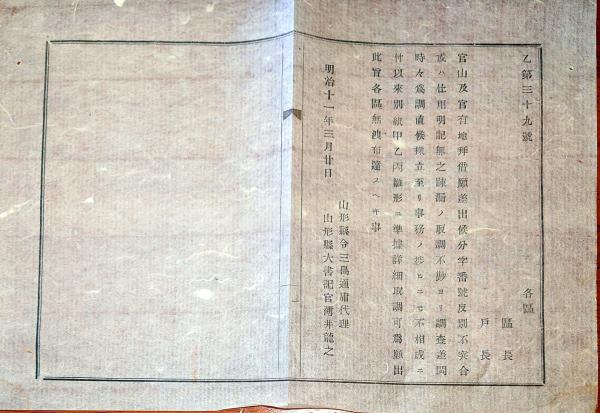 乙第三十九號
各區
區長
戶長
官山及官有地拜借願差出候分字番號反別不突合
或ハ仕用明記無之疎漏ノ取調不尠ヨリ調査差閊
時々爲調直候樣立至リ事務ノ捗ヒニモ不相成ニ
付以來別紙甲乙丙雛形ニ準據詳細取調可爲願出
此旨各區無洩布達スヘキ事
明治十一年三月廿日
山形縣令三島通庸代理
山形縣大書記官薄井龍之